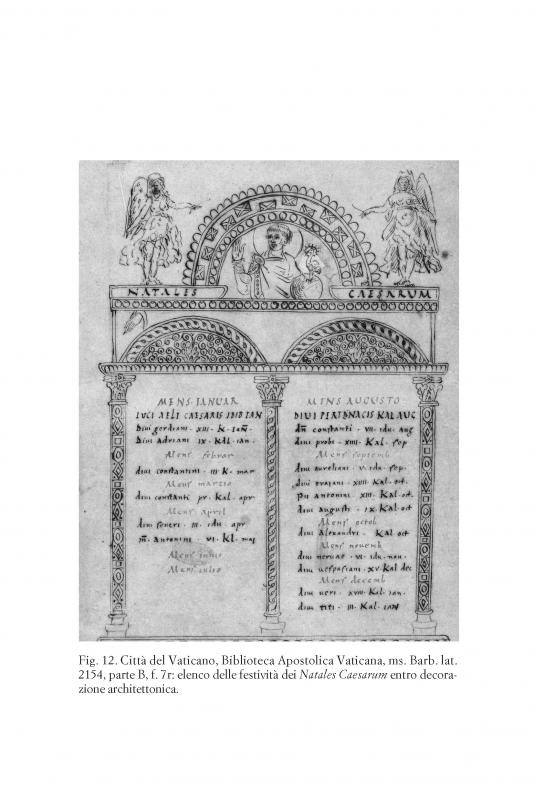 NATALES CAESARUM
MENS·IANUAR
LUCI AELI CAESARIS IDIB IAN
Divi gordiani · XIII · K · IAN̄
Divi Adriani IX · Kal · ian ·
Mens febrar
divi constantini · III K · mar
Mens marzio
divi constanti pr · Kal · apr
Mens april
divi severi · III · idu · apr
M̄ · Antonini · VI · Kl · mai
Mens iunio
Mens iulio
MENS AUGUSTO
DIVI PERTENACIS KAL AUG
dn̄ constanti · VII · idu · aug
divi probi · XIIII · Kal · sep
Mens septemb
divi aureliani · V · idu · sep ·
divi traiani · XIIII · Kal · oct
pii antonini · XIII · Kal · oct ·
divi augusti · IX · Kal · oct
Mens octob
divi Alexandri · Kal oct
Mens novemb
divi nervae · VI · idu · nov ·
divi vespasiani · XV Kal dec
Mens decemb
divi veri · XVIII · Kal · ian ·
divi titi · III · Kal · ian
Fig. 12. Città del Vaticano, Biblioteca Apostolica Vaticana, ms. Barb. lat.
2154, parte B, f. 7r: elenco delle festività dei Natales Caesarum entro decora-
zione architettonica.